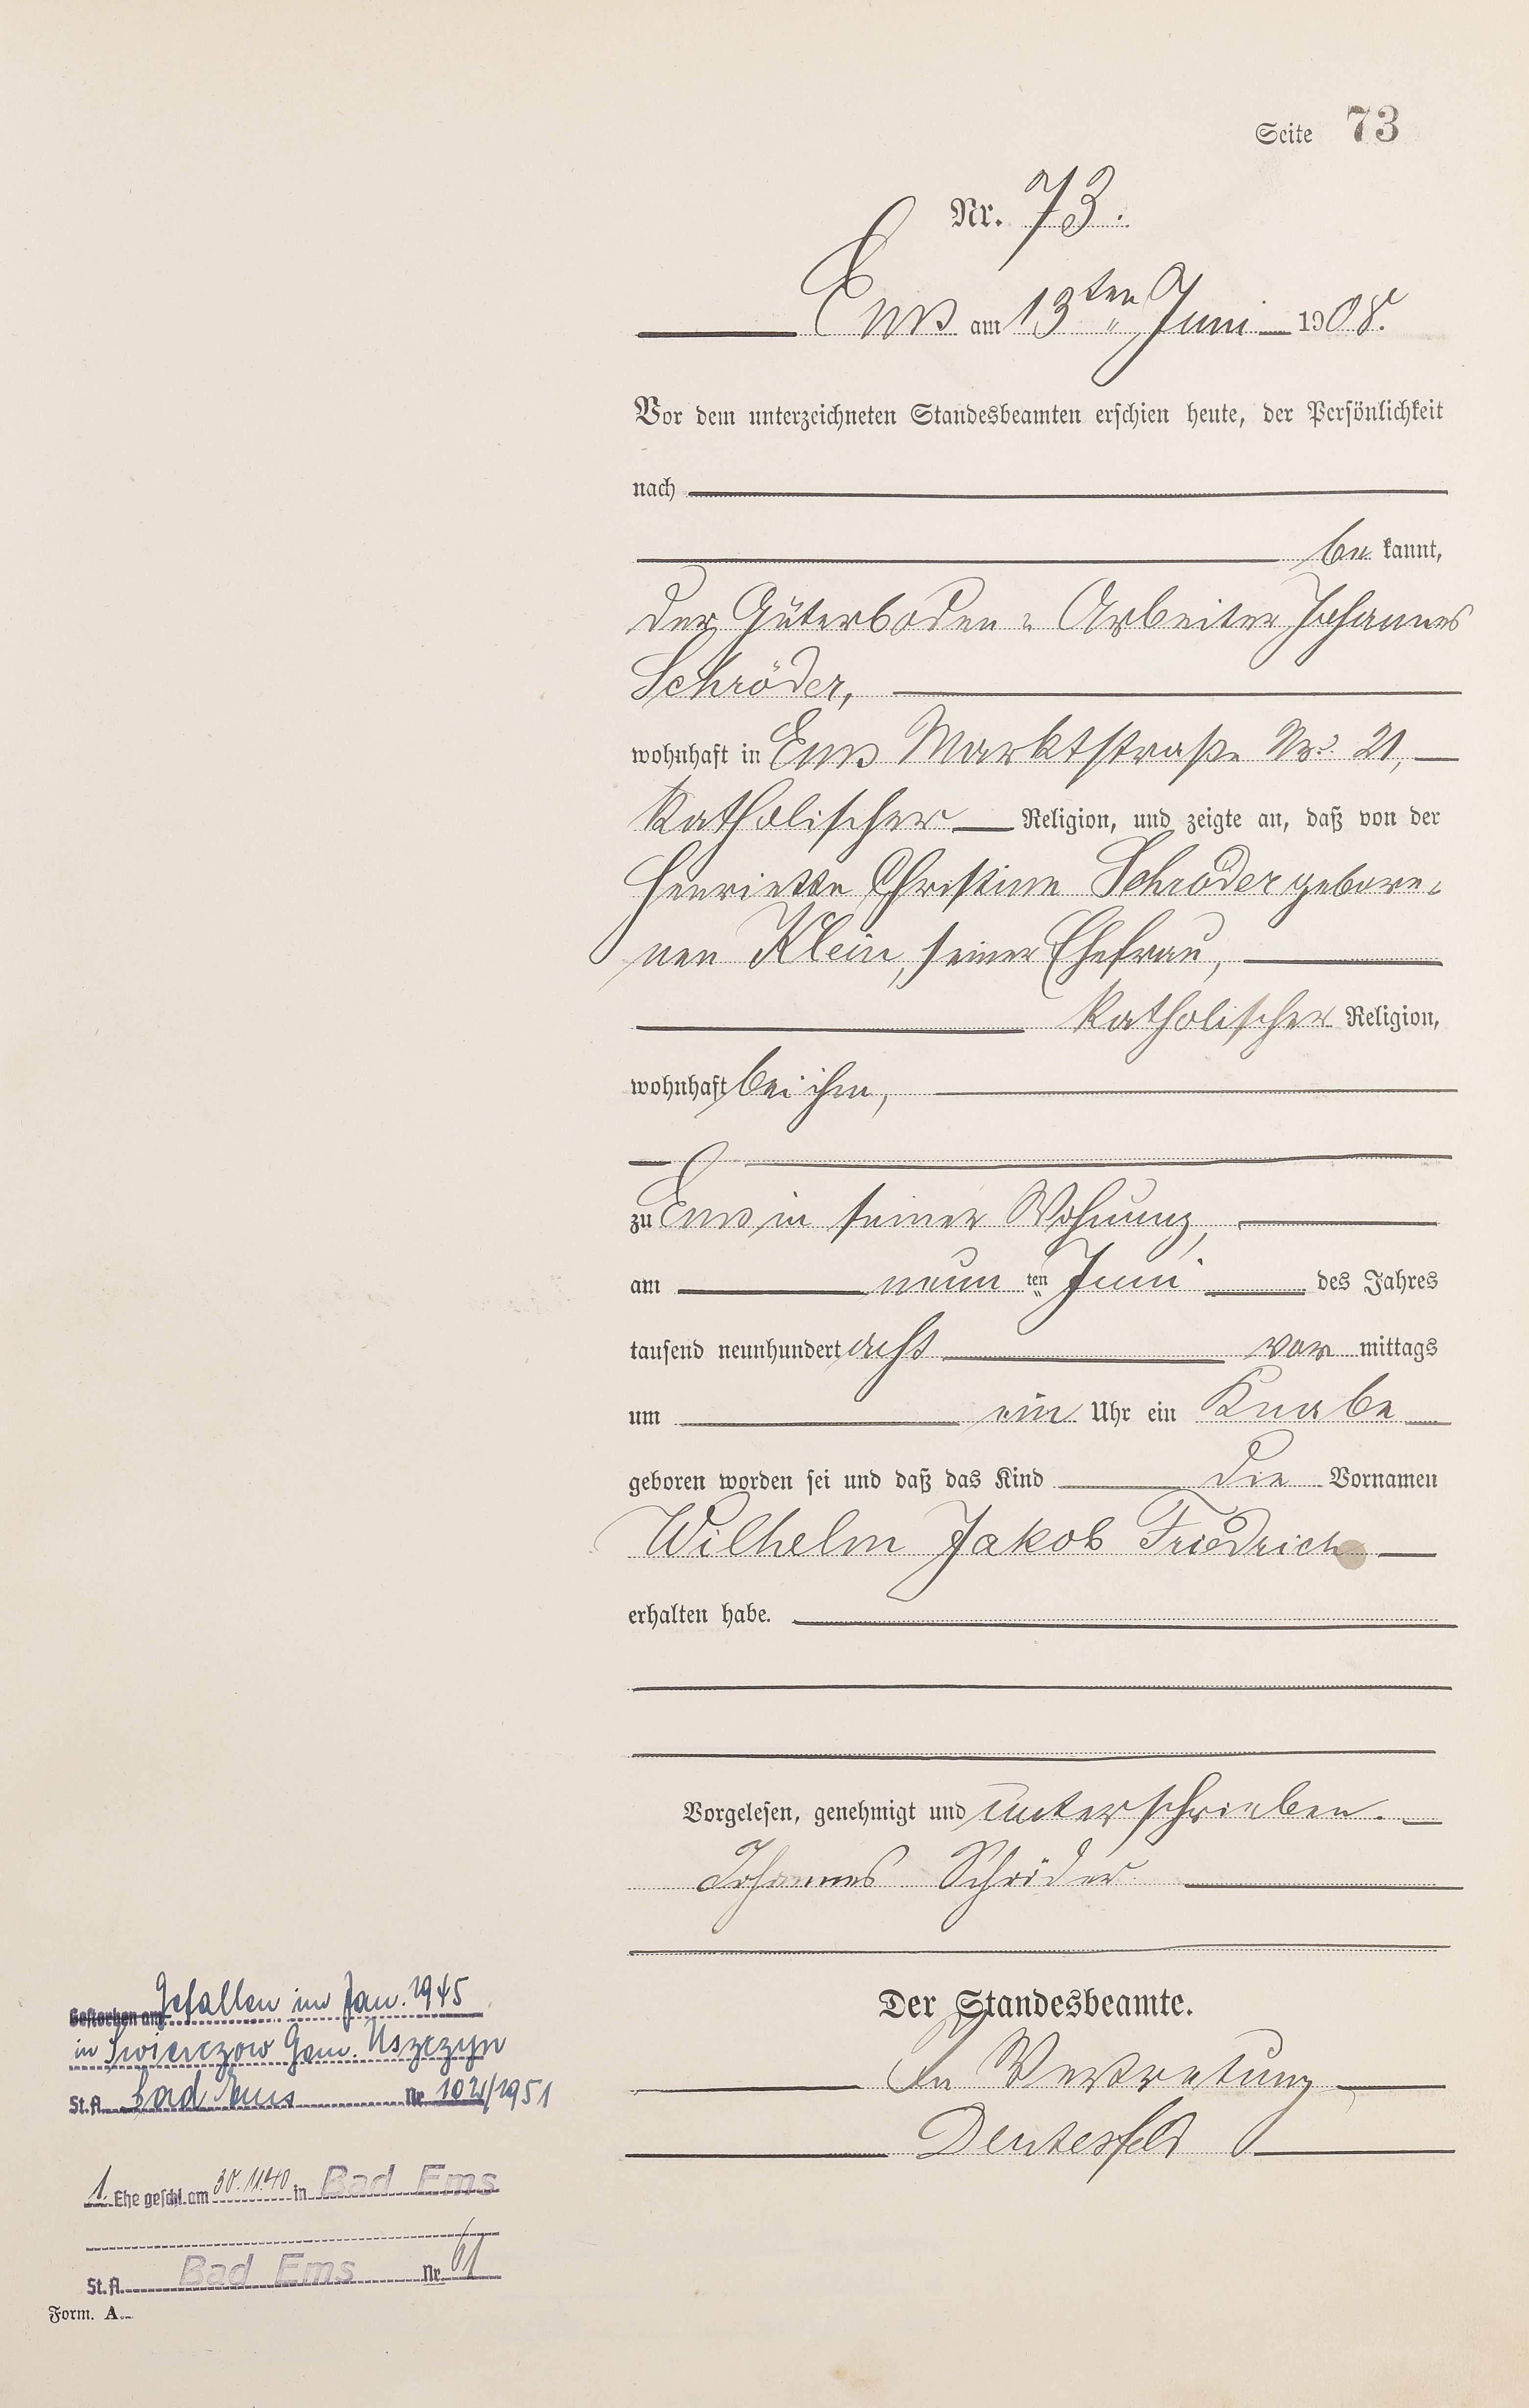 Seite 73
Nr. 73.
Ems am 13ten Juni 1908.
Vor dem unterzeichneten Standesbeamten erschien heute, der Persönlichkeit
nach
be kannt,
der Güterboden-Arbeiter Johannes
Schröder,
wohnhaft in Ems Marktstraße No. 21,
katholischer Religion, und zeigte an, daß von der
Henriette Christine Schröder gebore-
nen Klein, seiner Ehefrau,
katholischer Religion,
wohnhaft bei ihm,
zu Ems in seiner Wohnung,
am neun ten Juni des Jahres
tausend neunhundert acht vor mittags
um ein Uhr ein Knabe
geboren worden sei und daß das Kind die Vornamen
Wilhelm Jakob Friedrich
erhalten habe.
Vorgelesen, genehmigt und unterschrieben.
Johannes Schröder
Der Standesbeamte.
In Vertretung
Gestorben am Gefallen im Jan. 1945
in Swierczow Gem. Uszczyn
St.A. Bad Ems Nr. 102/1951
1. Ehe geschl. am 30.11.40 in Bad Ems
St.A. Bad Ems Nr. 61
Form. A.